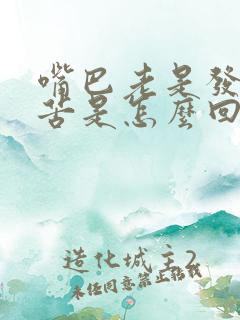 嘴巴老是發
苦是怎麼回
造化城主2
未经同意禁止转载